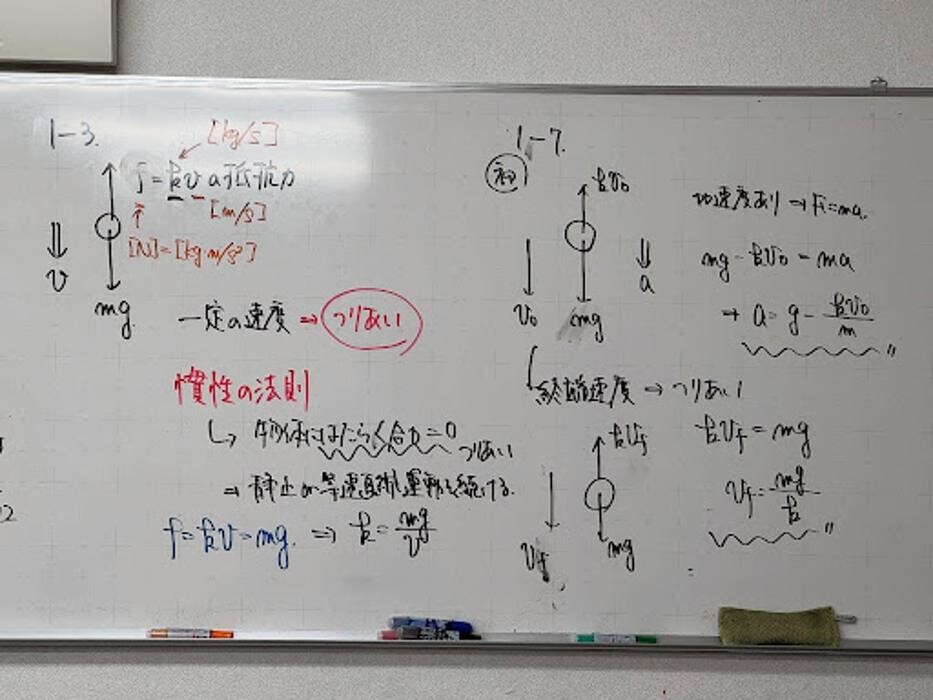 1-3.
[kg/s]
f = kv の抵抗力
[m/s]
[N]=[kg・m/s²]
v
mg
一定の速度 ⇒ つりあい
慣性の法則
↳ 物体にはたらく合力=0
つりあい
⇒ 静止 or 等速直線運動を続ける.
f=kv=mg. ⇒ k=mg/v
2
1-7.
初
kv₀
v₀
mg
a
加速度あり → F=ma.
mg-kv₀=ma
→ a=g-kv₀/m
終端速度 → つりあい
kv_f
v_f
mg
kv_f=mg
v_f=mg/k